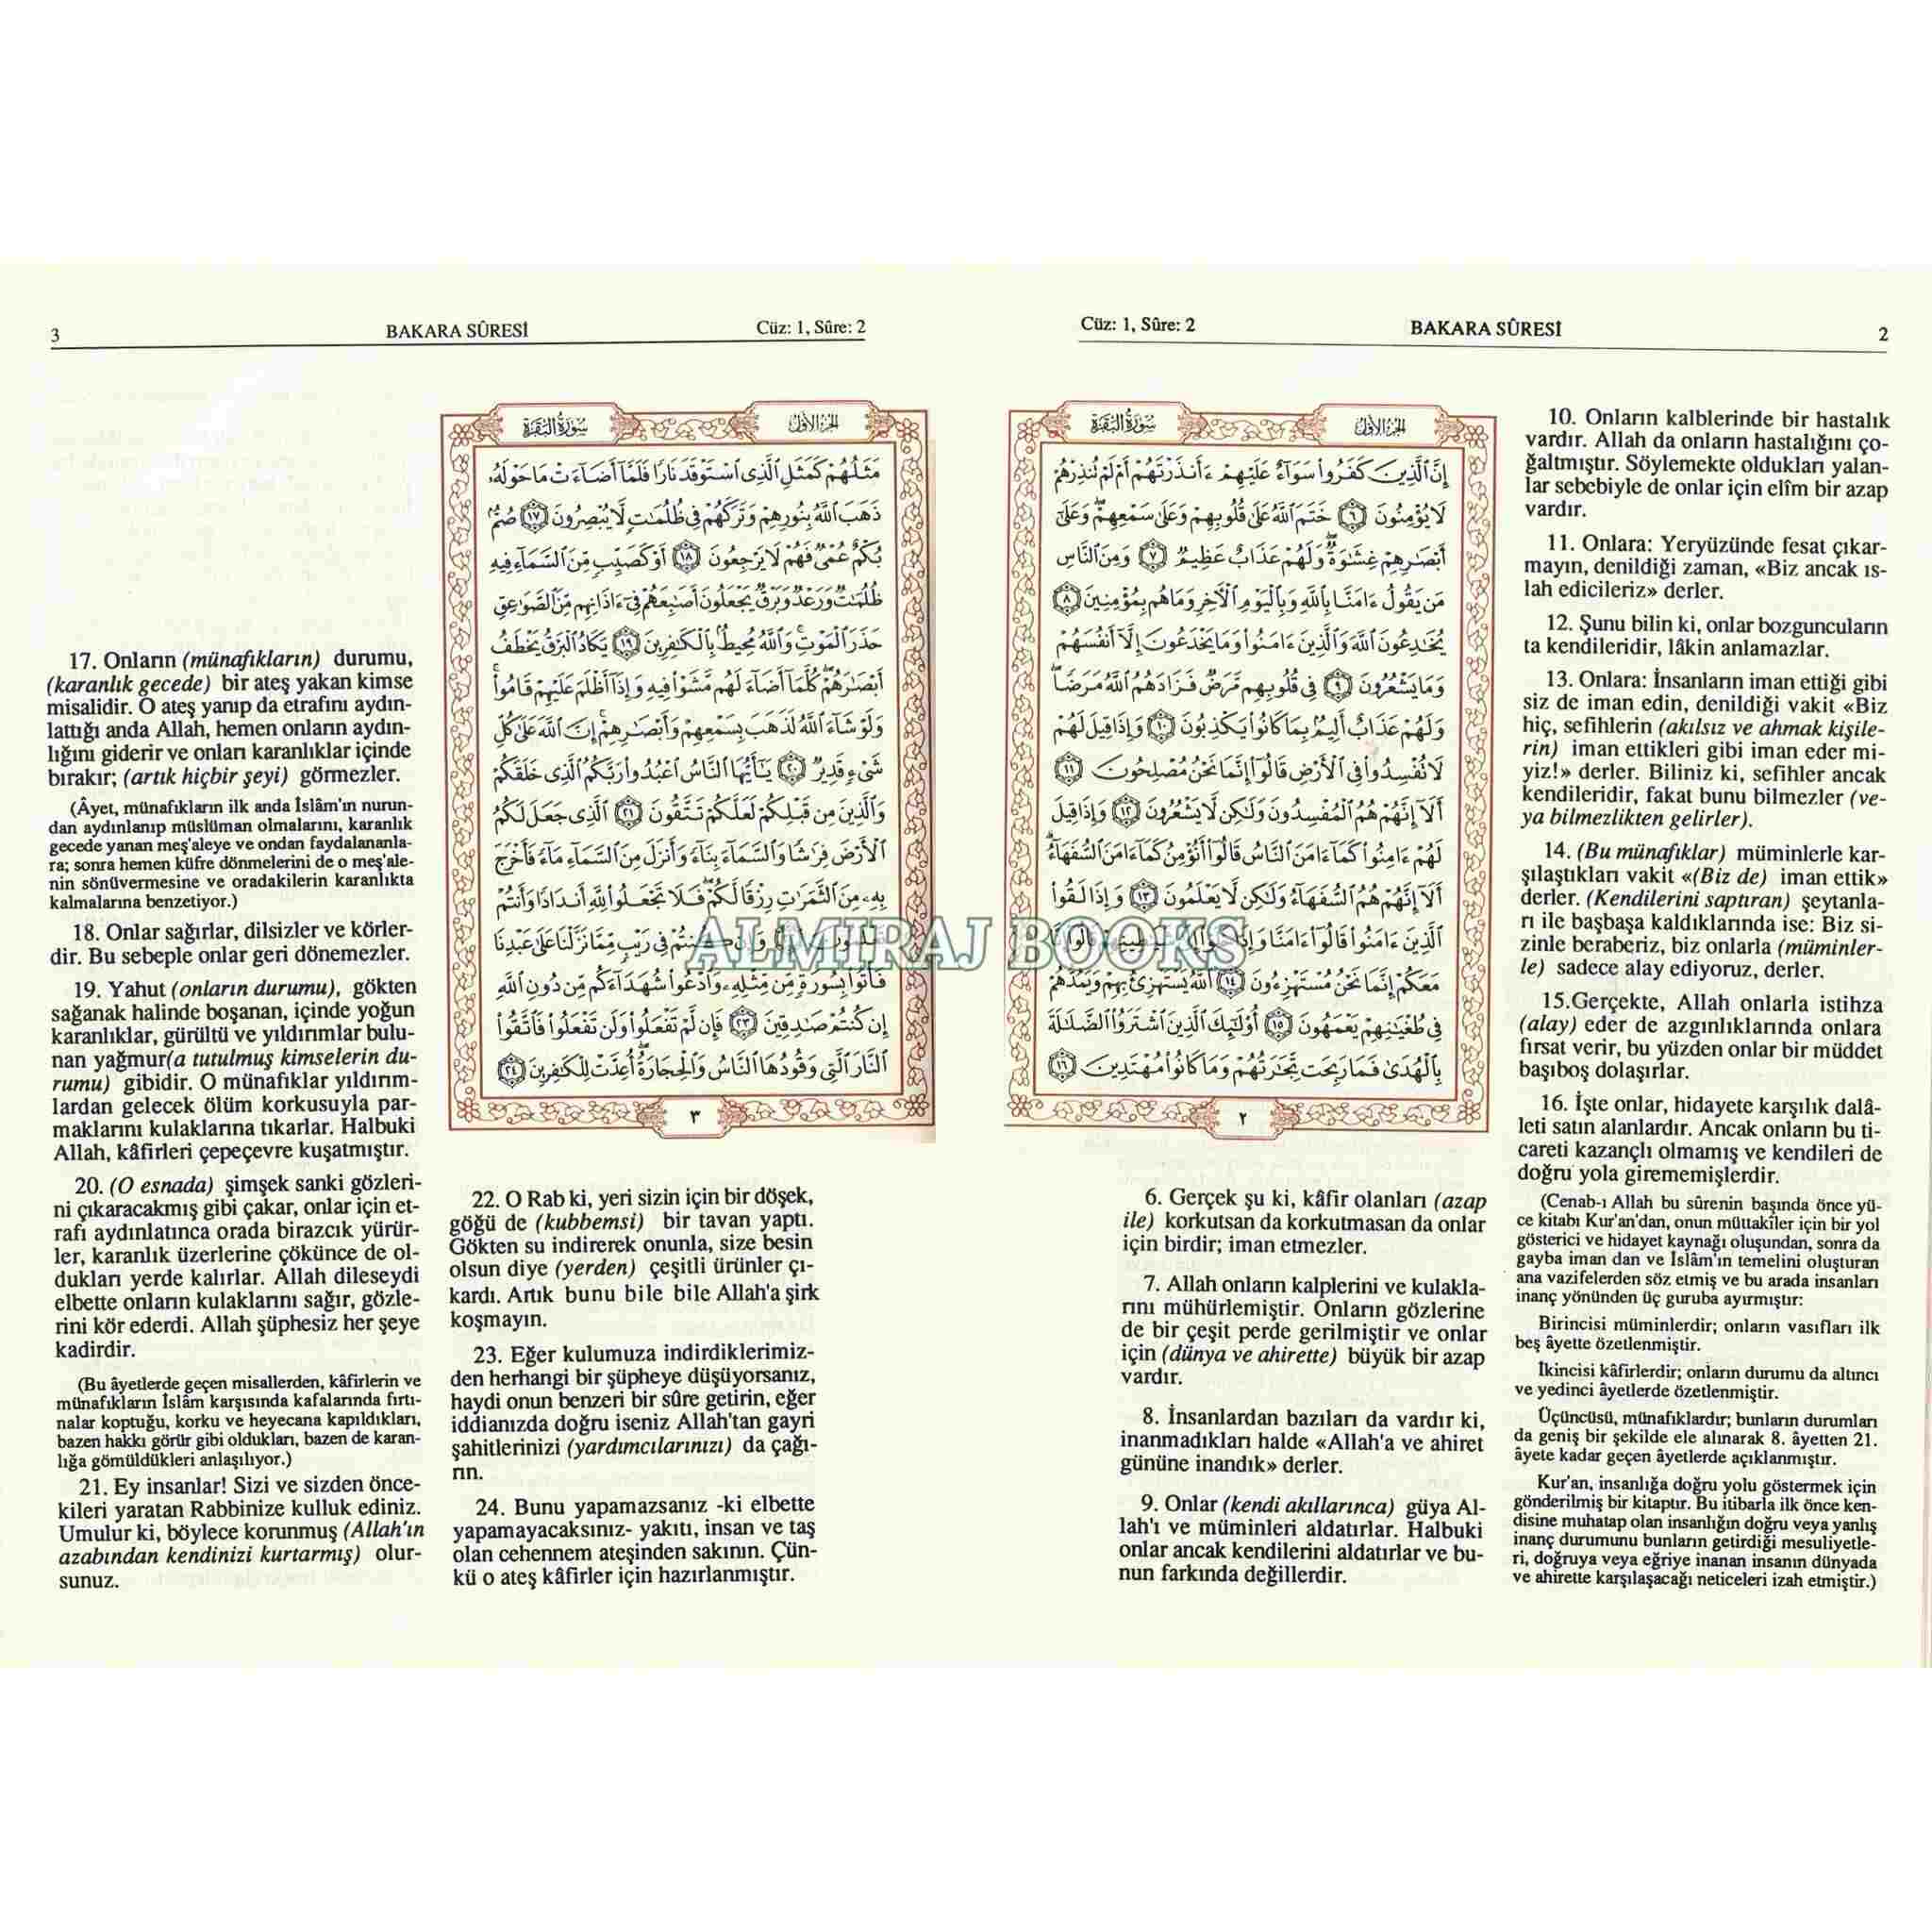 Cüz: 1, Sûre: 2 BAKARA SÛRESİ 2
سُورَةُ البَقَرَةِ الجزء الأول
إِنَّ ٱلَّذِينَ كَفَرُوا۟ سَوَآءٌ عَلَيْهِمْ ءَأَنذَرْتَهُمْ أَمْ لَمْ تُنذِرْهُمْ
لَا يُؤْمِنُونَ ٦ خَتَمَ ٱللَّهُ عَلَىٰ قُلُوبِهِمْ وَعَلَىٰ سَمْعِهِمْ ۖ وَعَلَىٰٓ
أَبْصَـٰرِهِمْ غِشَـٰوَةٌ ۖ وَلَهُمْ عَذَابٌ عَظِيمٌ ٧ وَمِنَ ٱلنَّاسِ
مَن يَقُولُ ءَامَنَّا بِٱللَّهِ وَبِٱلْيَوْمِ ٱلْـَٔاخِرِ وَمَا هُم بِمُؤْمِنِينَ ٨
يُخَـٰدِعُونَ ٱللَّهَ وَٱلَّذِينَ ءَامَنُوا۟ وَمَا يَخْدَعُونَ إِلَّآ أَنفُسَهُمْ
وَمَا يَشْعُرُونَ ٩ فِى قُلُوبِهِم مَّرَضٌ فَزَادَهُمُ ٱللَّهُ مَرَضًا ۖ
وَلَهُمْ عَذَابٌ أَلِيمٌۢ بِمَا كَانُوا۟ يَكْذِبُونَ ١٠ وَإِذَا قِيلَ لَهُمْ
لَا تُفْسِدُوا۟ فِى ٱلْأَرْضِ قَالُوٓا۟ إِنَّمَا نَحْنُ مُصْلِحُونَ ١١
أَلَآ إِنَّهُمْ هُمُ ٱلْمُفْسِدُونَ وَلَـٰكِن لَّا يَشْعُرُونَ ١٢ وَإِذَا قِيلَ
لَهُمْ ءَامِنُوا۟ كَمَآ ءَامَنَ ٱلنَّاسُ قَالُوٓا۟ أَنُؤْمِنُ كَمَآ ءَامَنَ ٱلسُّفَهَآءُ ۗ
أَلَآ إِنَّهُمْ هُمُ ٱلسُّفَهَآءُ وَلَـٰكِن لَّا يَعْلَمُونَ ١٣ وَإِذَا لَقُوا۟
ٱلَّذِينَ ءَامَنُوا۟ قَالُوٓا۟ ءَامَنَّا وَإِذَا
مَعَكُمْ إِنَّمَا نَحْنُ مُسْتَهْزِءُونَ ١٤ ٱللَّهُ يَسْتَهْزِئُ بِهِمْ وَيَمُدُّهُمْ
فِى طُغْيَـٰنِهِمْ يَعْمَهُونَ ١٥ أُو۟لَـٰٓئِكَ ٱلَّذِينَ ٱشْتَرَوُا۟ ٱلضَّلَـٰلَةَ
بِٱلْهُدَىٰ فَمَا رَبِحَت تِّجَـٰرَتُهُمْ وَمَا كَانُوا۟ مُهْتَدِينَ ١٦
٢
6. Gerçek şu ki, kâfir olanları (azap
ile) korkutsan da korkutmasan da onlar
için birdir; iman etmezler.
7. Allah onların kalplerini ve kulakla-
rını mühürlemiştir. Onların gözlerine
de bir çeşit perde gerilmiştir ve onlar
için (dünya ve ahirette) büyük bir azap
vardır.
8. İnsanlardan bazıları da vardır ki,
inanmadıkları halde «Allah'a ve ahiret
gününe inandık» derler.
9. Onlar (kendi akıllarınca) güya Al-
lah'ı ve müminleri aldatırlar. Halbuki
onlar ancak kendilerini aldatırlar ve bu-
nun farkında değillerdir.
10. Onların kalblerinde bir hastalık
vardır. Allah da onların hastalığını ço-
ğaltmıştır. Söylemekte oldukları yalan-
lar sebebiyle de onlar için elîm bir azap
vardır.
11. Onlara: Yeryüzünde fesat çıkar-
mayın, denildiği zaman, «Biz ancak ıs-
lah edicileriz» derler.
12. Şunu bilin ki, onlar bozguncuların
ta kendileridir, lâkin anlamazlar.
13. Onlara: İnsanların iman ettiği gibi
siz de iman edin, denildiği vakit «Biz
hiç, sefihlerin (akılsız ve ahmak kişile-
rin) iman ettikleri gibi iman eder mi-
yiz!» derler. Biliniz ki, sefihler ancak
kendileridir, fakat bunu bilmezler (ve-
ya bilmezlikten gelirler).
14. (Bu münafıklar) müminlerle kar-
şılaştıkları vakit «(Biz de) iman ettik»
derler. (Kendilerini saptıran) şeytanla-
rı ile başbaşa kaldıklarında ise: Biz si-
zinle beraberiz, biz onlarla (müminler-
le) sadece alay ediyoruz, derler.
15.Gerçekte, Allah onlarla istihza
(alay) eder de azgınlıklarında onlara
fırsat verir, bu yüzden onlar bir müddet
başıboş dolaşırlar.
16. İşte onlar, hidayete karşılık dalâ-
leti satın alanlardır. Ancak onların bu ti-
careti kazançlı olmamış ve kendileri de
doğru yola girememişlerdir.
(Cenab-ı Allah bu sûrenin başında önce yü-
ce kitabı Kur'an'dan, onun müttakîler için bir yol
gösterici ve hidayet kaynağı oluşundan, sonra da
gayba iman dan ve İslâm'ın temelini oluşturan
ana vazifelerden söz etmiş ve bu arada insanları
inanç yönünden üç guruba ayırmıştır:
Birincisi müminlerdir; onların vasıfları ilk
beş âyette özetlenmiştir.
İkincisi kâfirlerdir; onların durumu da altıncı
ve yedinci âyetlerde özetlenmiştir.
Üçüncüsü, münafıklardır; bunların durumları
da geniş bir şekilde ele alınarak 8. âyetten 21.
âyete kadar geçen âyetlerde açıklanmıştır.
Kur'an, insanlığa doğru yolu göstermek için
gönderilmiş bir kitaptır. Bu itibarla ilk önce ken-
disine muhatap olan insanlığın doğru veya yanlış
inanç durumunu bunların getirdiği mesuliyetle-
ri, doğruya veya eğriye inanan insanın dünyada
ve ahirette karşılaşacağı neticeleri izah etmiştir.)
3 BAKARA SÛRESİ Cüz: 1, Sûre: 2
سُورَةُ البَقَرَةِ الجزء الأول
مَثَلُهُمْ كَمَثَلِ ٱلَّذِى ٱسْتَوْقَدَ نَارًا فَلَمَّآ أَضَآءَتْ مَا حَوْلَهُۥ
ذَهَبَ ٱللَّهُ بِنُورِهِمْ وَتَرَكَهُمْ فِى ظُلُمَـٰتٍ لَّا يُبْصِرُونَ ١٧ صُمٌّۢ
بُكْمٌ عُمْىٌ فَهُمْ لَا يَرْجِعُونَ ١٨ أَوْ كَصَيِّبٍ مِّنَ ٱلسَّمَآءِ فِيهِ
ظُلُمَـٰتٌ وَرَعْدٌ وَبَرْقٌ يَجْعَلُونَ أَصَـٰبِعَهُمْ فِىٓ ءَاذَانِهِم مِّنَ ٱلصَّوَٰعِقِ
حَذَرَ ٱلْمَوْتِ ۚ وَٱللَّهُ مُحِيطٌۢ بِٱلْكَـٰفِرِينَ ١٩ يَكَادُ ٱلْبَرْقُ يَخْطَفُ
أَبْصَـٰرَهُمْ ۖ كُلَّمَآ أَضَآءَ لَهُم مَّشَوْا۟ فِيهِ وَإِذَآ أَظْلَمَ عَلَيْهِمْ قَامُوا۟ ۚ
وَلَوْ شَآءَ ٱللَّهُ لَذَهَبَ بِسَمْعِهِمْ وَأَبْصَـٰرِهِمْ ۚ إِنَّ ٱللَّهَ عَلَىٰ كُلِّ
شَىْءٍ قَدِيرٌ ٢٠ يَـٰٓأَيُّهَا ٱلنَّاسُ ٱعْبُدُوا۟ رَبَّكُمُ ٱلَّذِى خَلَقَكُمْ
وَٱلَّذِينَ مِن قَبْلِكُمْ لَعَلَّكُمْ تَتَّقُونَ ٢١ ٱلَّذِى جَعَلَ لَكُمُ
ٱلْأَرْضَ فِرَٰشًا وَٱلسَّمَآءَ بِنَآءً وَأَنزَلَ مِنَ ٱلسَّمَآءِ مَآءً فَأَخْرَجَ
بِهِۦ مِنَ ٱلثَّمَرَٰتِ رِزْقًا لَّكُمْ ۖ فَلَا تَجْعَلُوا۟ لِلَّهِ أَندَادًا وَأَنتُمْ
فِى رَيْبٍ مِّمَّا نَزَّلْنَا عَلَىٰ عَبْدِنَا
فَأْتُوا۟ بِسُورَةٍ مِّن مِّثْلِهِۦ وَٱدْعُوا۟ شُهَدَآءَكُم مِّن دُونِ ٱللَّهِ
إِن كُنتُمْ صَـٰدِقِينَ ٢٣ فَإِن لَّمْ تَفْعَلُوا۟ وَلَن تَفْعَلُوا۟ فَٱتَّقُوا۟
ٱلنَّارَ ٱلَّتِى وَقُودُهَا ٱلنَّاسُ وَٱلْحِجَارَةُ ۖ أُعِدَّتْ لِلْكَـٰفِرِينَ ٢٤
٣
17. Onların (münafıkların) durumu,
(karanlık gecede) bir ateş yakan kimse
misalidir. O ateş yanıp da etrafını aydın-
lattığı anda Allah, hemen onların aydın-
lığını giderir ve onları karanlıklar içinde
bırakır; (artık hiçbir şeyi) görmezler.
(Âyet, münafıkların ilk anda İslâm'ın nurun-
dan aydınlanıp müslüman olmalarını, karanlık
gecede yanan meş'aleye ve ondan faydalananla-
ra; sonra hemen küfre dönmelerini de o meş'ale-
nin sönüvermesine ve oradakilerin karanlıkta
kalmalarına benzetiyor.)
18. Onlar sağırlar, dilsizler ve körler-
dir. Bu sebeple onlar geri dönemezler.
19. Yahut (onların durumu), gökten
sağanak halinde boşanan, içinde yoğun
karanlıklar, gürültü ve yıldırımlar bulu-
nan yağmur(a tutulmuş kimselerin du-
rumu) gibidir. O münafıklar yıldırım-
lardan gelecek ölüm korkusuyla par-
maklarını kulaklarına tıkarlar. Halbuki
Allah, kâfirleri çepeçevre kuşatmıştır.
20. (O esnada) şimşek sanki gözleri-
ni çıkaracakmış gibi çakar, onlar için et-
rafı aydınlatınca orada birazcık yürür-
ler, karanlık üzerlerine çökünce de ol-
dukları yerde kalırlar. Allah dileseydi
elbette onların kulaklarını sağır, gözle-
rini kör ederdi. Allah şüphesiz her şeye
kadirdir.
(Bu âyetlerde geçen misallerden, kâfirlerin ve
münafıkların İslâm karşısında kafalarında fırtı-
nalar koptuğu, korku ve heyecana kapıldıkları,
bazen hakkı görür gibi oldukları, bazen de karan-
lığa gömüldükleri anlaşılıyor.)
21. Ey insanlar! Sizi ve sizden önce-
kileri yaratan Rabbinize kulluk ediniz.
Umulur ki, böylece korunmuş (Allah'ın
azabından kendinizi kurtarmış) olur-
sunuz.
22. O Rab ki, yeri sizin için bir döşek,
göğü de (kubbemsi) bir tavan yaptı.
Gökten su indirerek onunla, size besin
olsun diye (yerden) çeşitli ürünler çı-
kardı. Artık bunu bile bile Allah'a şirk
koşmayın.
23. Eğer kulumuza indirdiklerimiz-
den herhangi bir şüpheye düşüyorsanız,
haydi onun benzeri bir sûre getirin, eğer
iddianızda doğru iseniz Allah'tan gayri
şahitlerinizi (yardımcılarınızı) da çağı-
rın.
24. Bunu yapamazsanız -ki elbette
yapamayacaksınız- yakıtı, insan ve taş
olan cehennem ateşinden sakının. Çün-
kü o ateş kâfirler için hazırlanmıştır.
ALMIRAJ BOOKS